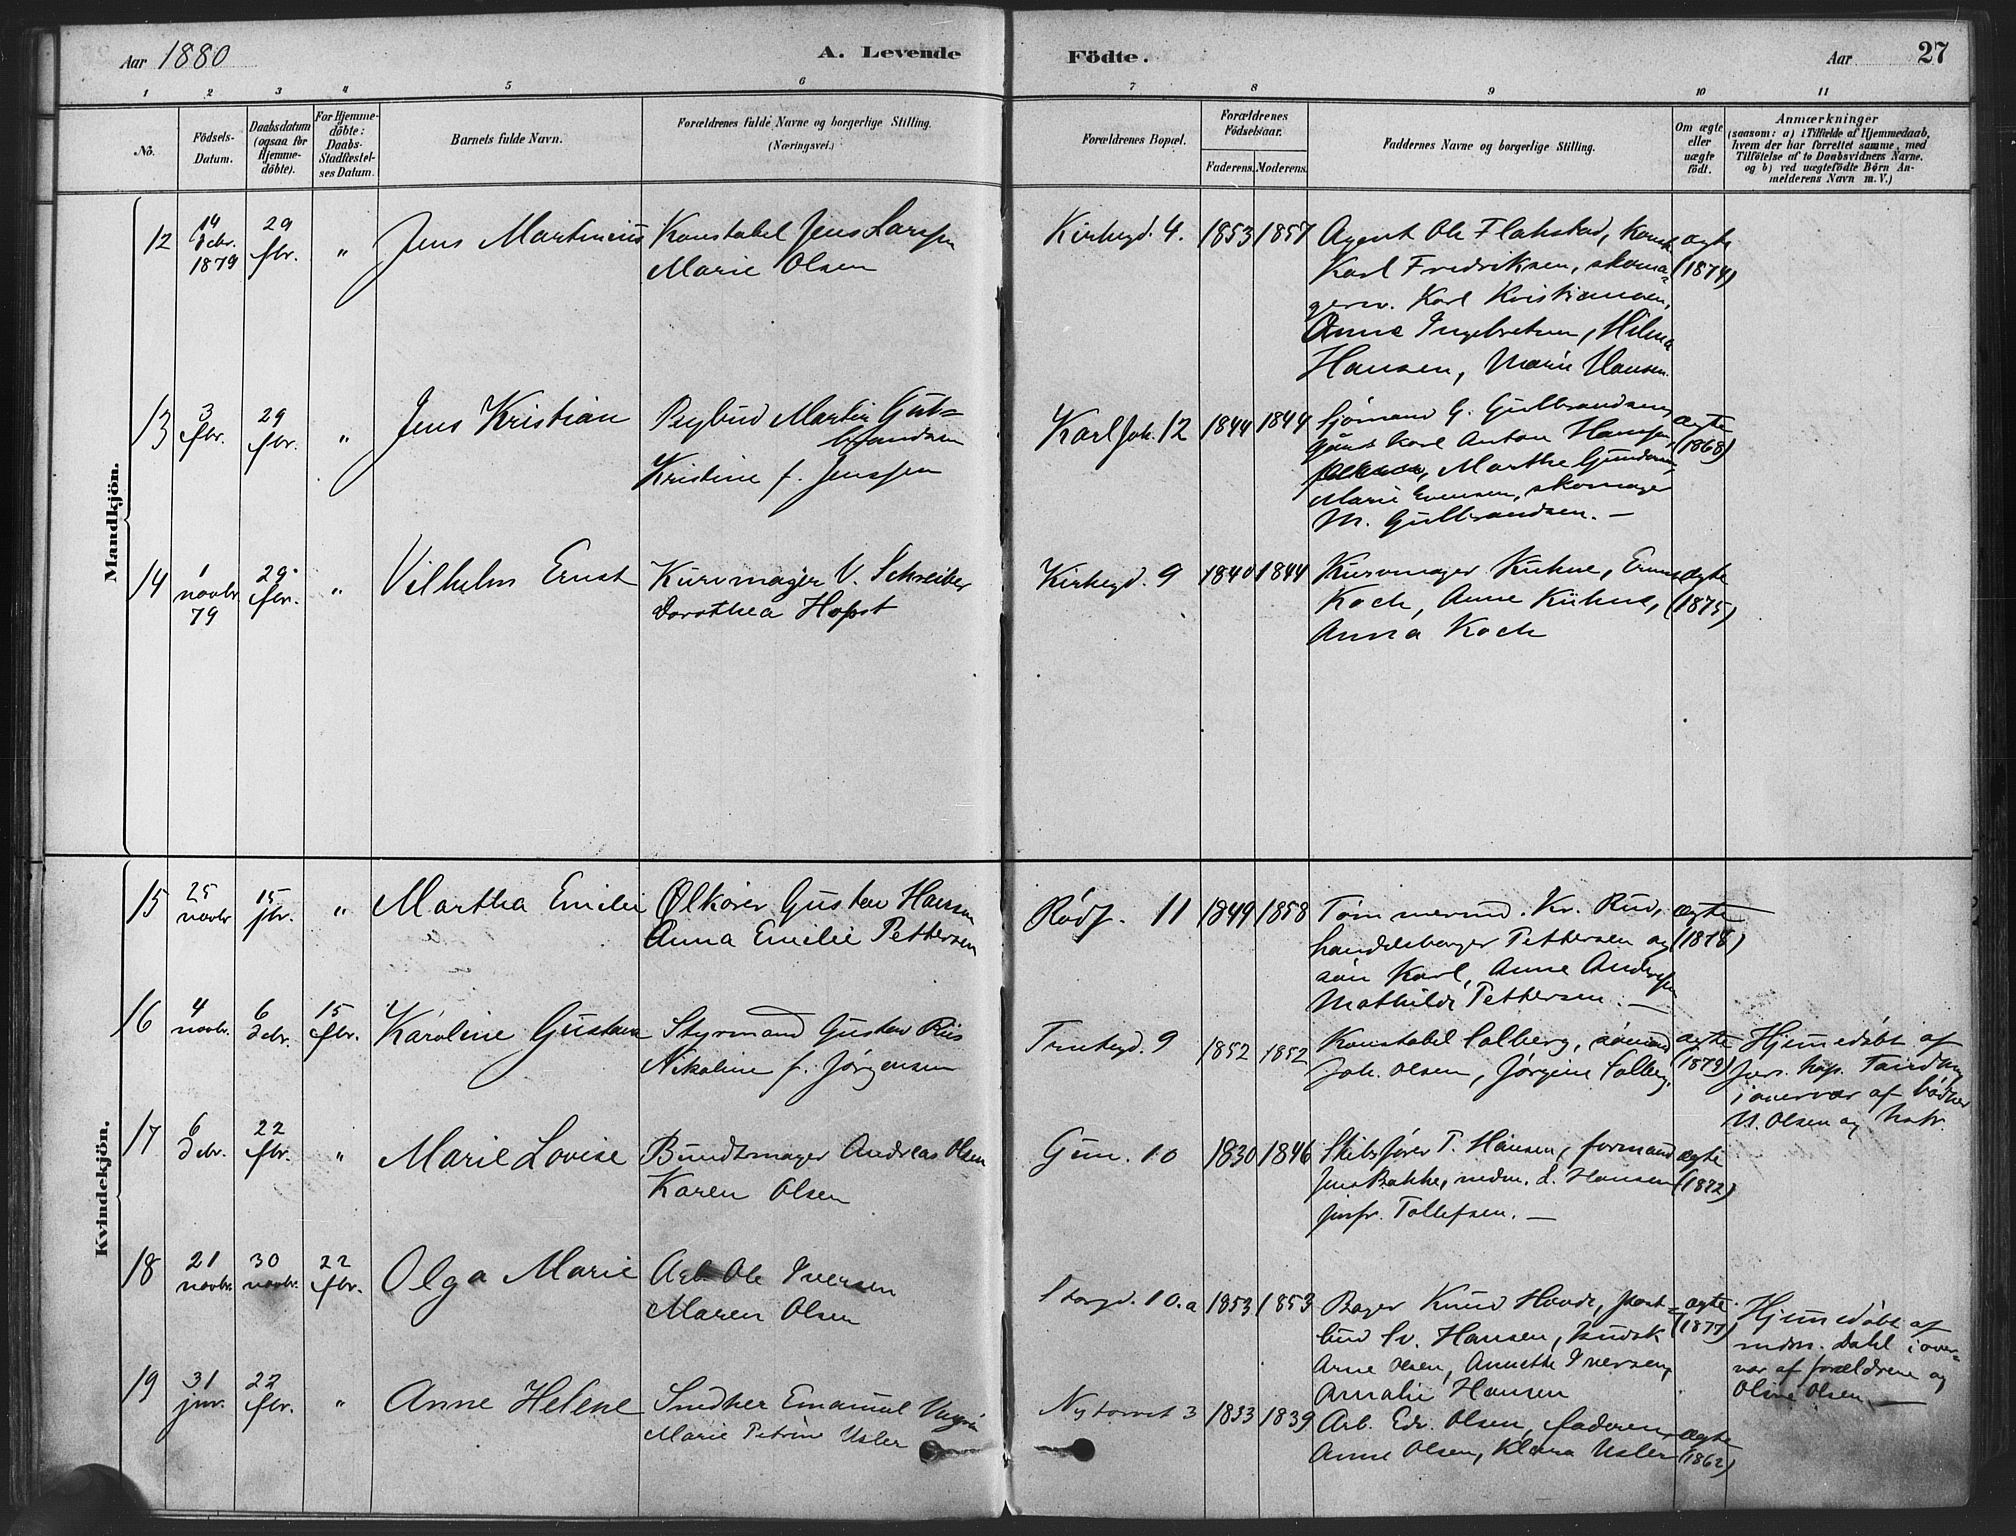 Aar 1880
A. Levende
Födte.
Aar
27
1 2 3 4 5 6 7 8 9 10 11
No.
Födsels-
Datum.
Daabsdatum
(ogsaa for
Hjemme-
döbte).
For Hjemme-
döbte:
Daabs-
Stadfæstel-
ses Datum.
Barnets fulde Navn.
Forældrenes fulde Navne og borgerlige Stilling.
(Næringsvei.)
Forældrenes Bopæl.
Forældrenes
Födselsaar.
Faderens. Moderens.
Faddernes Navne og borgerlige Stilling.
Om ægte
eller
uægte
födt.
Anmærkninger
(saasom: a) i Tilfælde af Hjemmedaab,
hvem der har forrettet samme, med
Tilföielse af to Daabsvidners Navne.
og b) ved uægtefödte Børn An-
melderens Navn m. V.)
Mandkjön.
12
14
debr.
1879
29
fbr.
"
Jens Martinius
Konstabel Jens Larsen
Marie Olsen
Kirkegd. 4.
1853 1857
Agent Ole Flakstad, Konst.
Karl Fredriksen, skoma-
gersv. Karl Kristiansen,
Anne Ingebretsen, Hilma
Hansen, Marie Hansen.
ægte
(1874)
13
3
fbr.
29
fbr.
"
Jens Kristian
Martin Gul-
brandsen
Kristine f. Jenssen
Karl Joh. 12
1844 1844
Sjømand G. Gulbrandsen,
Karl Anton Hansen,
Marthe Gundersen,
Marie Evensen, skomager
M. Gulbrandsen. —
ægte
(1868)
14
1
novbr.
79
29
fbr.
"
Vilhelm Ernst
Kurvmager V. Schreiber
Dorothea Hopst
Kirkegd. 9
1840 1844
Kurvmager Kühne, Ernst
Koch, Anne Kühne,
Anna Koch
ægte
(1875)
Kvindekjön.
15
25
novbr
15
fbr.
"
Martha Emilie
Ølkører Gustav Hansen
Anna Emilie Pettersen
Rødf. 11
1849 1858
Tømmermd. Kr. Rud,
handelsborger Pettersen og
søn Karl, Anne Andersen
Mathilde Pettersen. —
ægte
(1878)
16
4
novbr.
6
debr.
15
fbr.
Karoline Gustava
Styrmand Gustav Riis
Nikoline f. Jørgensen
9
1852 1852
Konstabel Solberg, sømand
Joh. Olsen, Jørgine Solberg.
ægte
(1879)
Hjemmedøbt af
i overvær af bødker
N. Olsen og
17
6
debr.
22
fbr.
"
Marie Lovise
Bundtmager Andreas Olsen
Karen Olsen
Grøn. 10
1830 1846
Skibsfører T. Hansen, formand
Jens Bakke, mdm. L. Hansen
jmfr. Tollefsen. —
ægte
(1872)
18
21
novbr.
30
novbr.
22
fbr.
Olga Marie
Arb. Ole Iversen
Maren Olsen
Storgd. 10.a
1853 1853
Bager Knud Hovde, post-
bud Sv. Hansen, kudsk
Arne Olsen, Annette Iversen,
Amalie Hansen
ægte
(1877)
Hjemmedøbt af
mdm. Dahl i over-
vær af forældrene og
Oline Olsen. —
19
31
jnr.
22
fbr.
"
Anne Helene
Snedker Emanuel
Marie Petrine Usler
Nytorvet 3
1833 1839
Arb. Edv. Olsen, faderen,
Anne Olsen, Klara Usler
ægte
(1862)